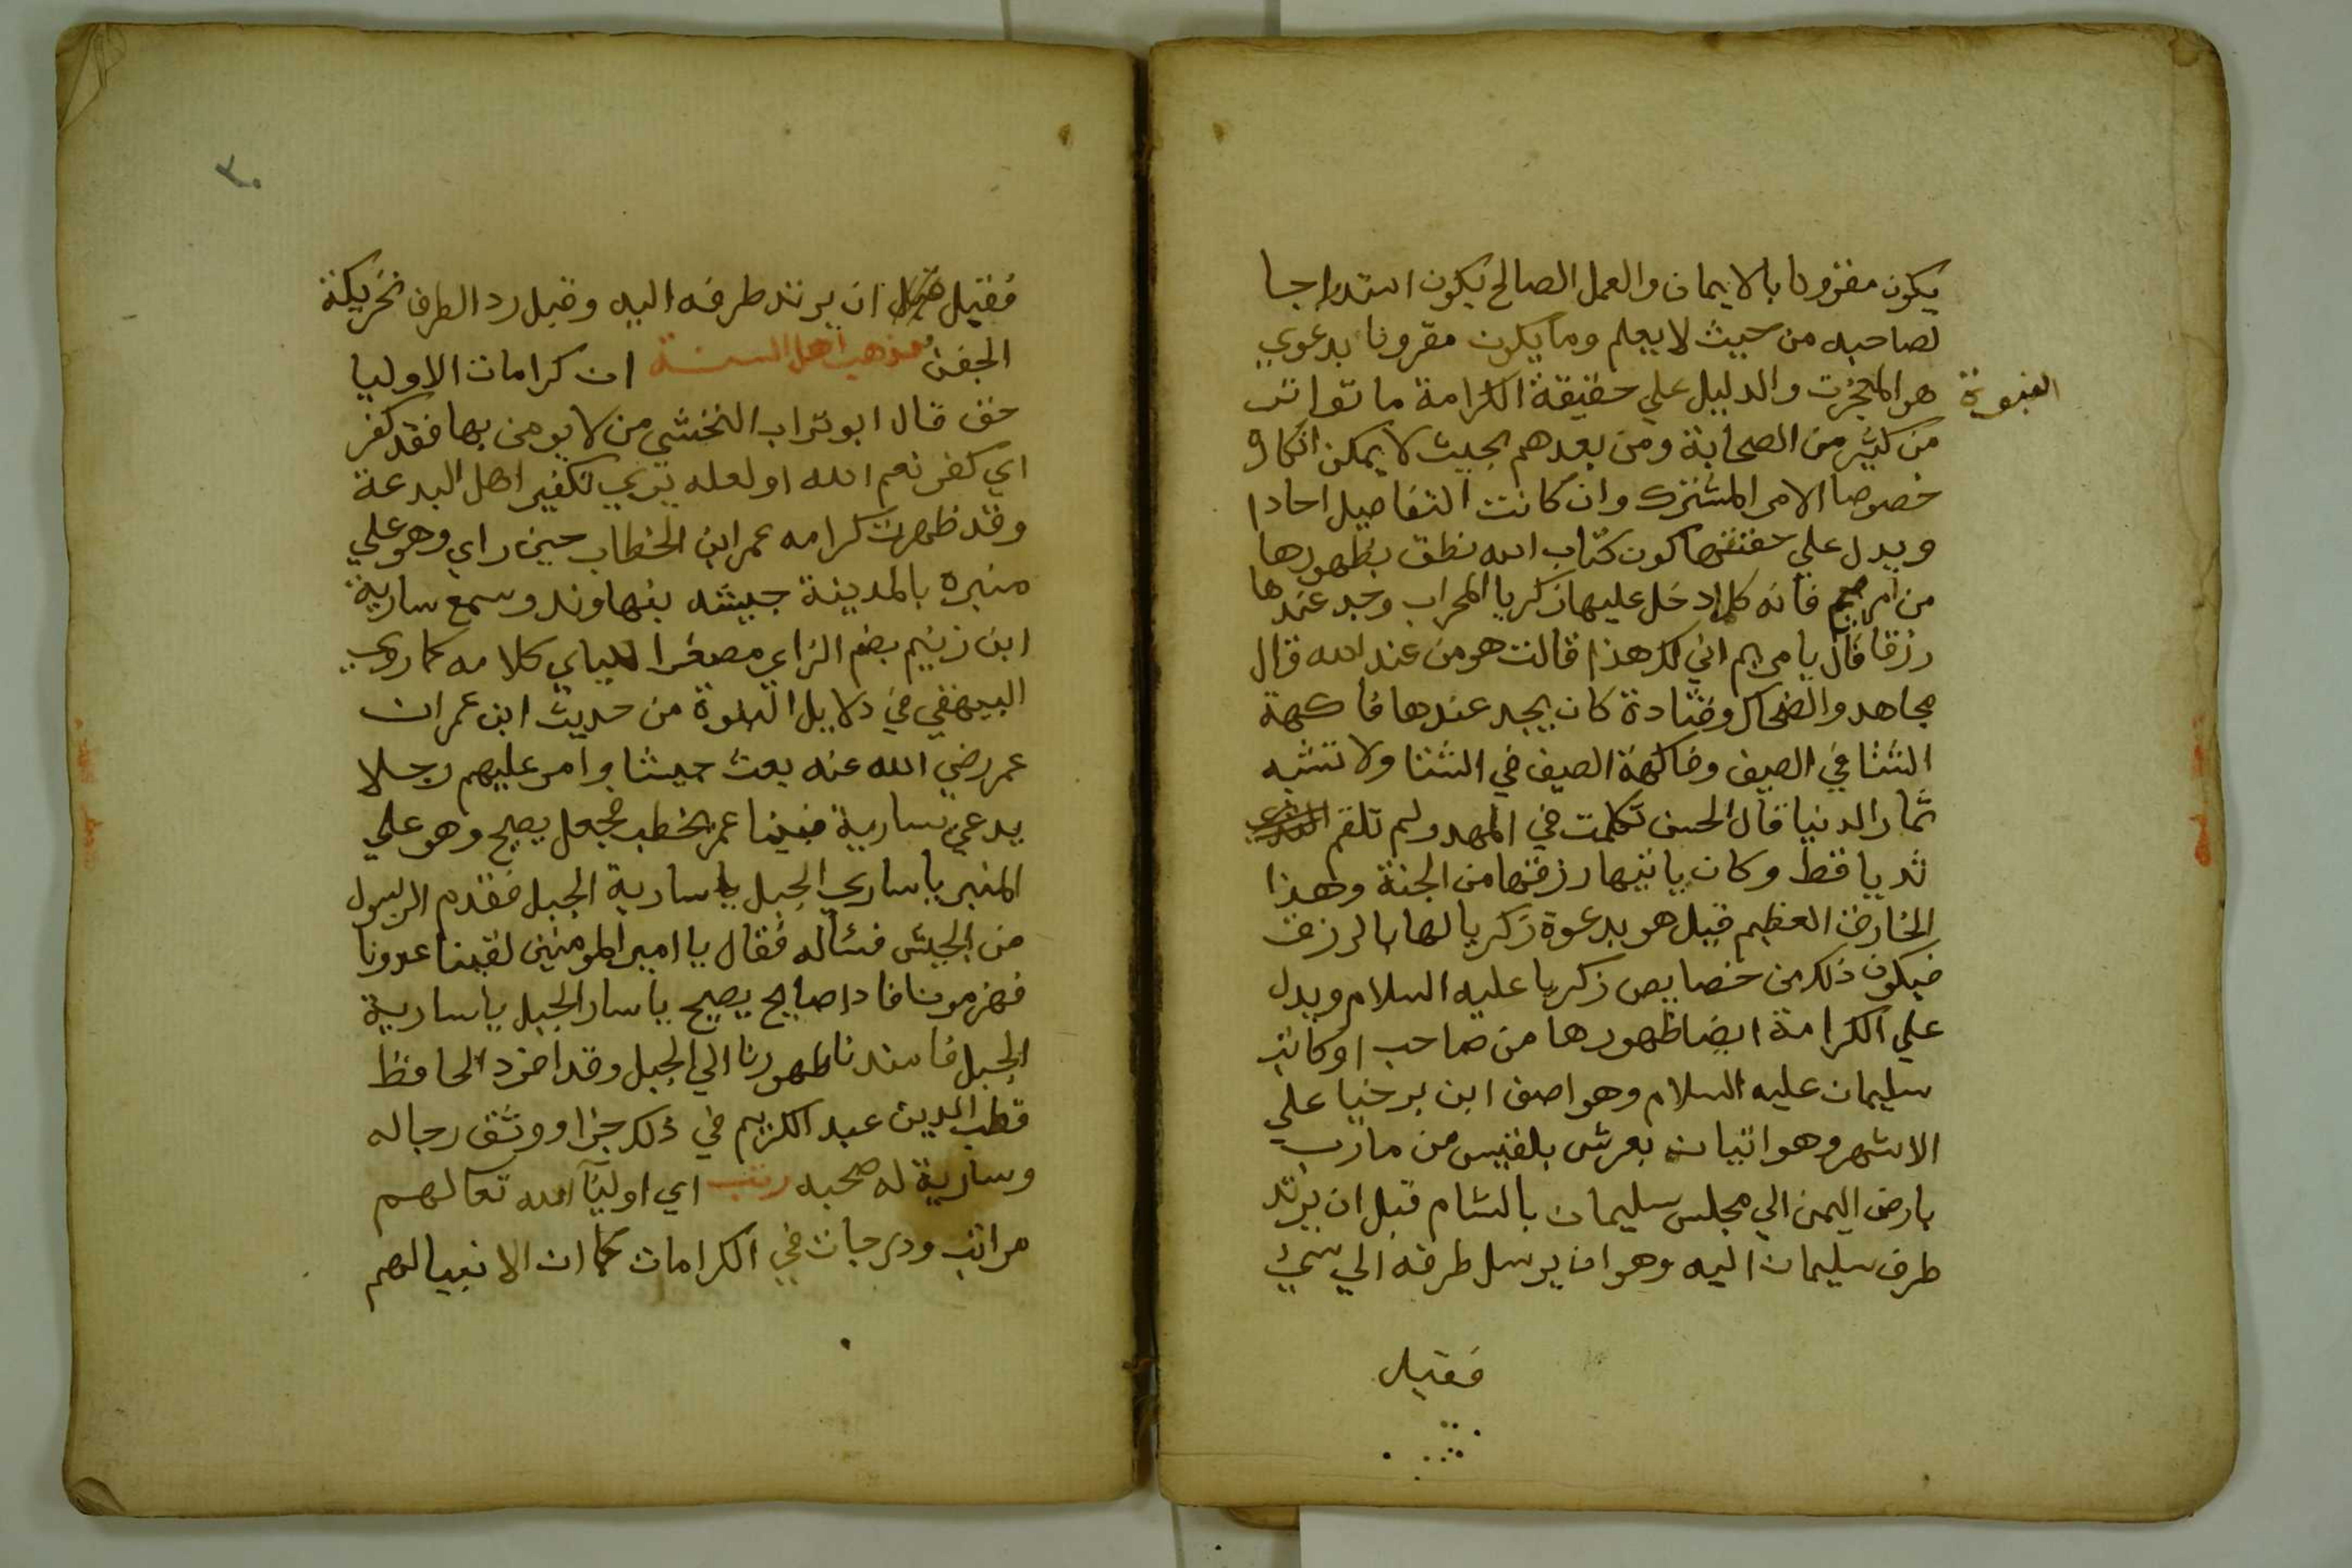 يكون مقرونا بالايمان والعمل الصالح يكون استدراجا
لصاحبه من حيث لا يعلم وما يكون مقرونا بدعوي
النبوة
هو المعجزت والدليل علي حقيقة الكرامة ما تواتر
من كثير من الصحابة ومن بعدهم بحيث لا يمكن انكاره
خصوصا الامر المشترك وان كانت التفاصيل احادا
ويدل علي حقتنها كون كتاب الله نطق بظهورها
من ام مريم فانه كلما دخل عليها زكريا المحراب وجد عندها
رزقا قال يا مريم اني لك هذا قالت هو من عند الله قال
مجاهد والضحاك وقتادة كان يجد عندها فاكهة
الشتا في الصيف وفاكهة الصيف في الشتا ولا تشبه
ثمار الدنيا قال الحسن تكلمت في المهد ولم تلقم
ثديا قط وكان ياتيها رزقها من الجنة وهذا
الخارق العظيم قيل هو بدعوة زكريا لها بالرزق
فيكون ذلك من خصايص زكريا عليه السلام ويدل
علي الكرامة ايضا ظهورها من صاحب او كاتب
سليمان عليه السلام وهو اصف ابن برخيا علي
الاشهر وهو اتيان بعرش بلقيس من مارب
بارض اليمن الي مجلس سليمان بالشام قبل ان يرتد
طرف سليمان اليه وهو ان يرسل طرفه الي شئ
فقيل
٣٠
فقيل قبل ان يرتد طرفه اليه وقيل رد الطرف تحريكة
الجفن مذهب اهل السنة ان كرامات الاوليا
حق قال ابو تراب النخشبي من لا يومن بها فقد كفر
اي كفر نعم الله او لعله يري تكفير اهل البدعة
وقد ظهرت كرامه عمر ابن الخطاب حين راي وهو علي
منبره بالمدينة جيشه بنهاوند وسمع سارية
ابن زنيم بضم الزاي مصغرا للياي كلامه كما روي
البيهقي في دلايل النبوة من حديث ابن عمر ان
عمر رضي الله عنه بعث جيشا وامر عليهم رجلا
يدعي سارية فبينا عمر يخطب فجعل يصيح وهو علي
المنبر يا ساري الجبل يا سارية الجبل فقدم الرسول
من الجيش فسئاله فقال يا امير المومنين لقينا عدونا
فهزمونا فاذا صايح يصيح يا سار الجبل يا سارية
الجبل فاسندنا ظهورنا الي الجبل وقد افرد الحافظ
قطب الدين عبد الكريم في ذلك جزا ووثق رجاله
وسارية له صحبه رتب اي اوليآ الله تعا لهم
مراتب ودرجات في الكرامات كما ان الانبيا لهم